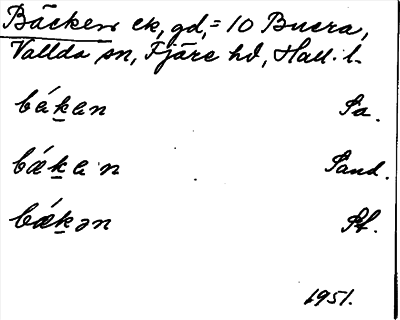 Bäcken ek, gd, = 10 Buera,
Vallda sn, Fjäre hd, Hall. l.
bék̠en Sa.
bǽk̠e n Sand.
bǽk̠ən Pf.
1951.